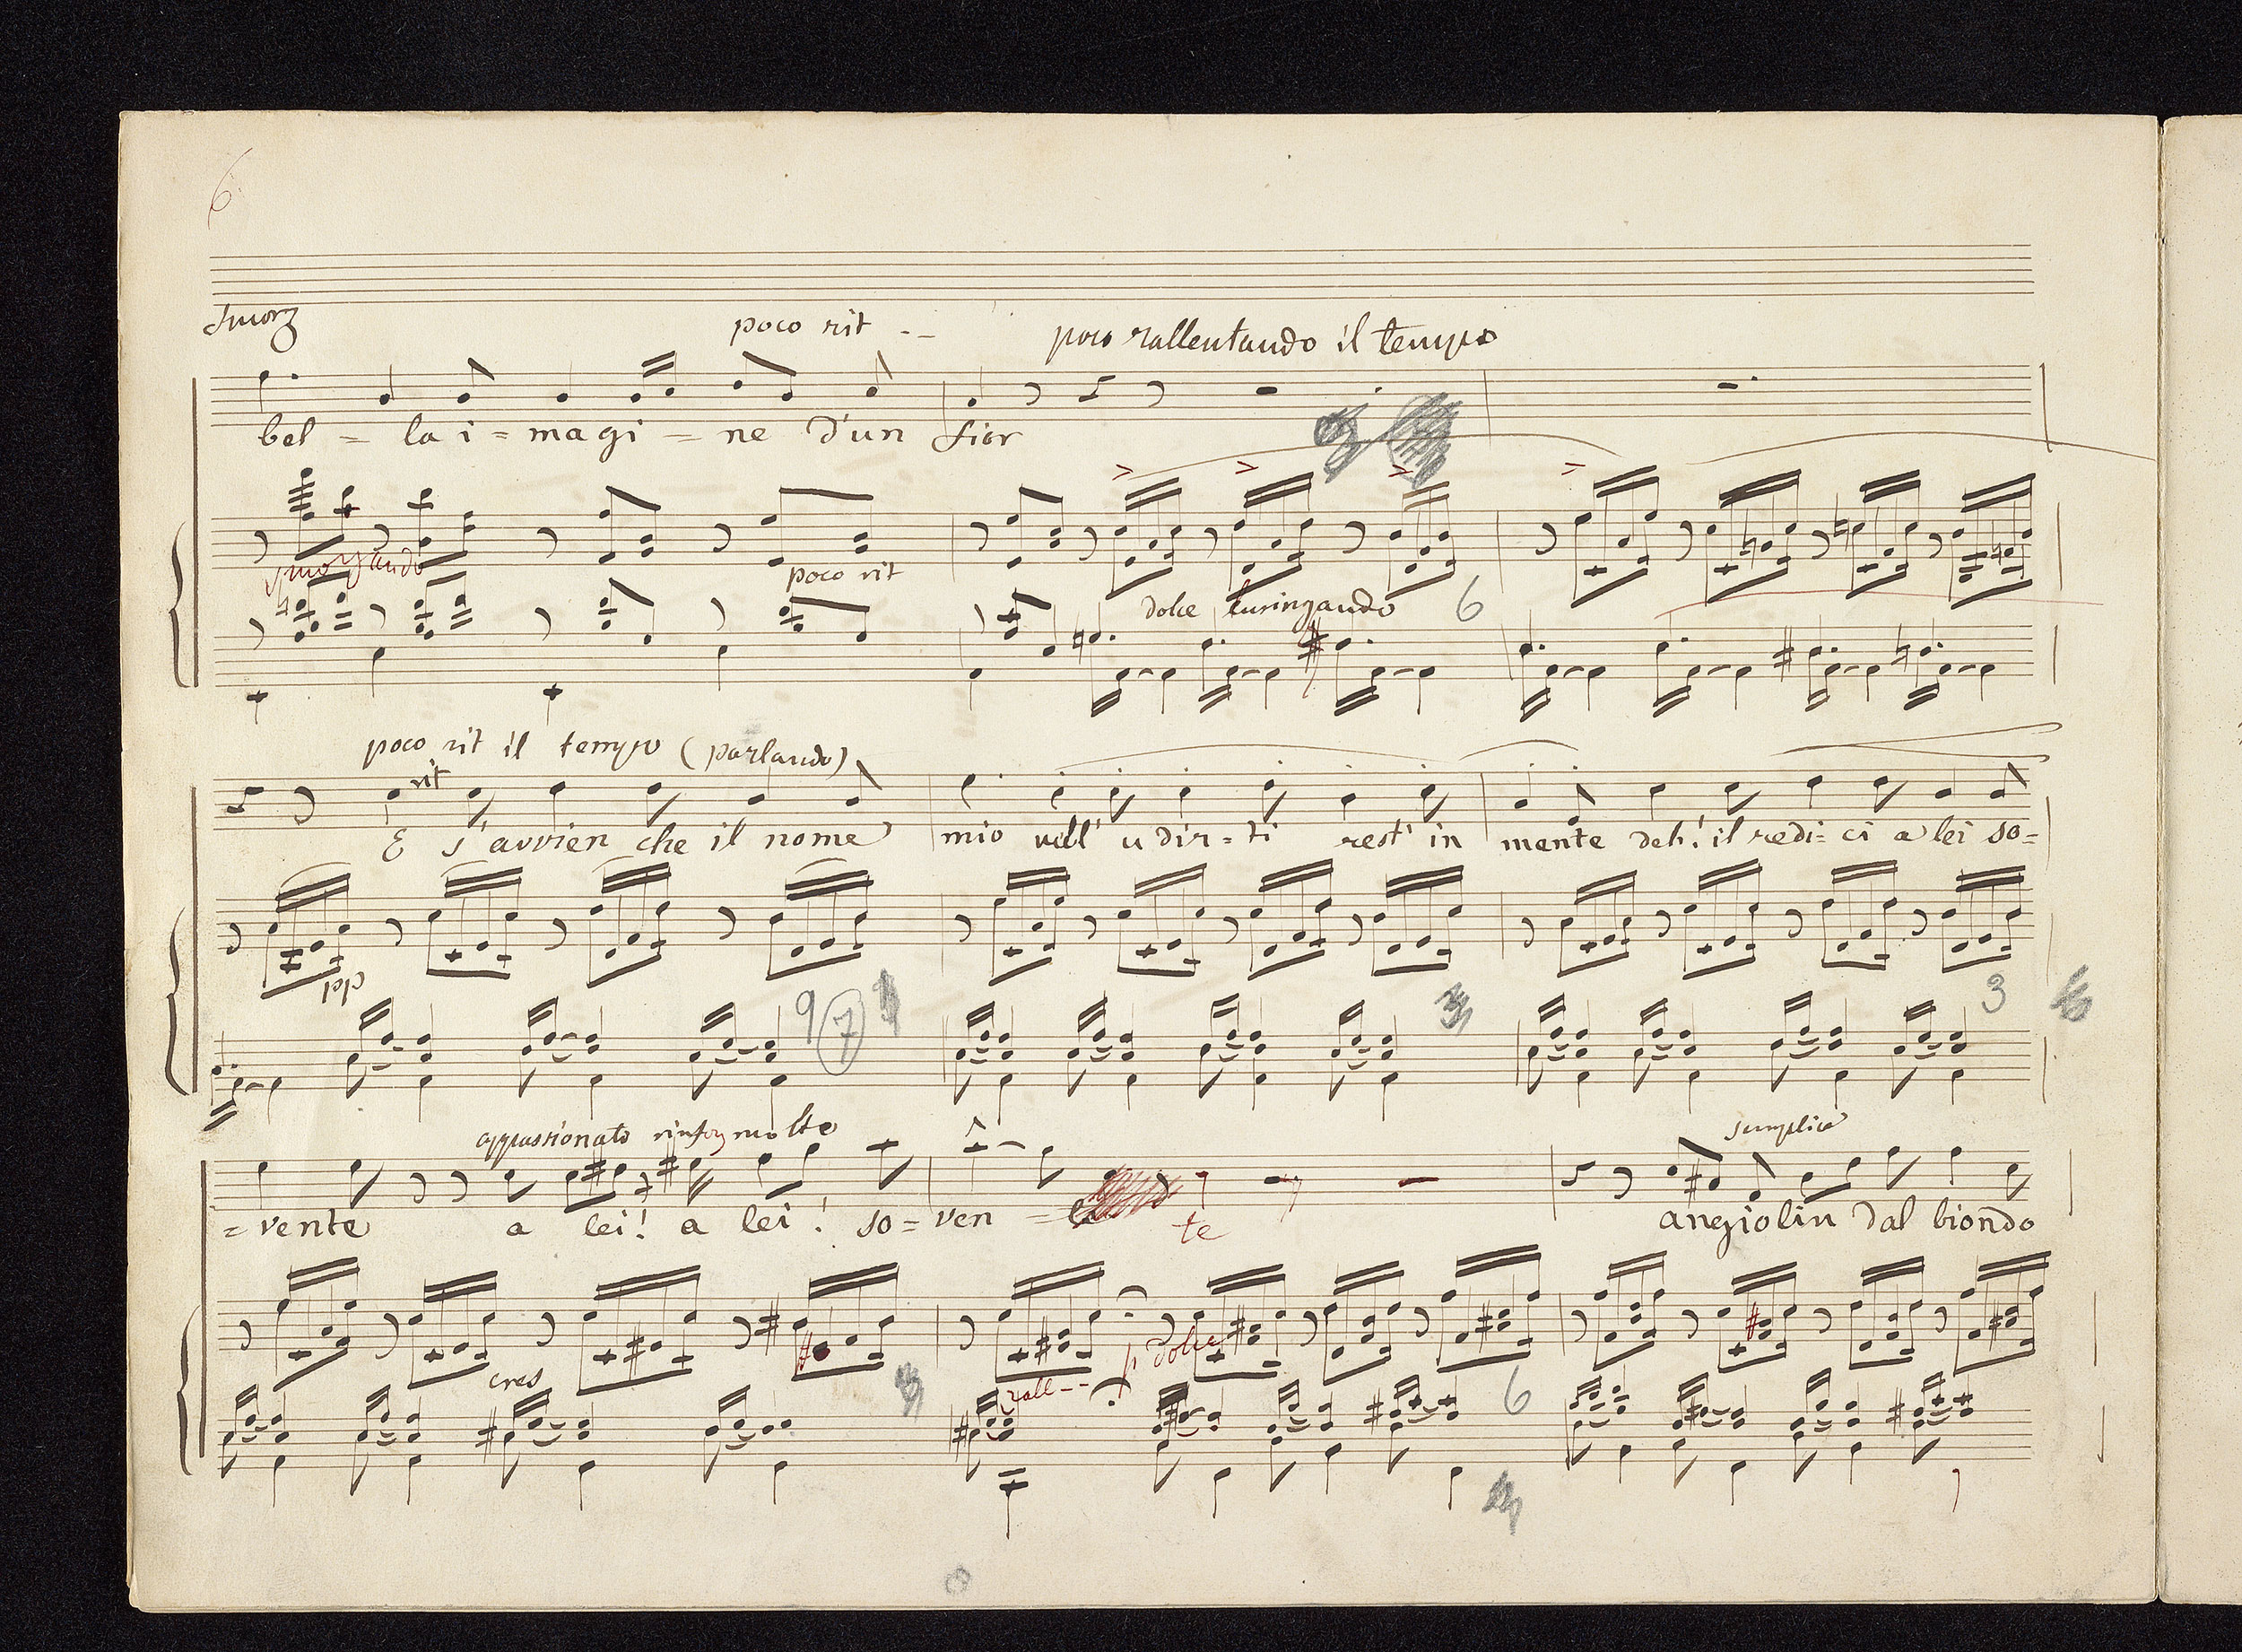 6
smorz
poco rit -- poco rallentando il tempo
bel = la i = magi = ne d'un fior
smorzando
poco rit
dolce lusingando 6
poco rit il tempo (parlando)
rit
E s'avvien che il nome mio nell' udir = ti rest' in mente deh! il redi = ci a lei so =
pp
9 7
3 3
appassionato rinforz molto
semplice
= vente a lei! a lei! so = ven = te angiolin dal biondo
p dolce
cres
rall--
6